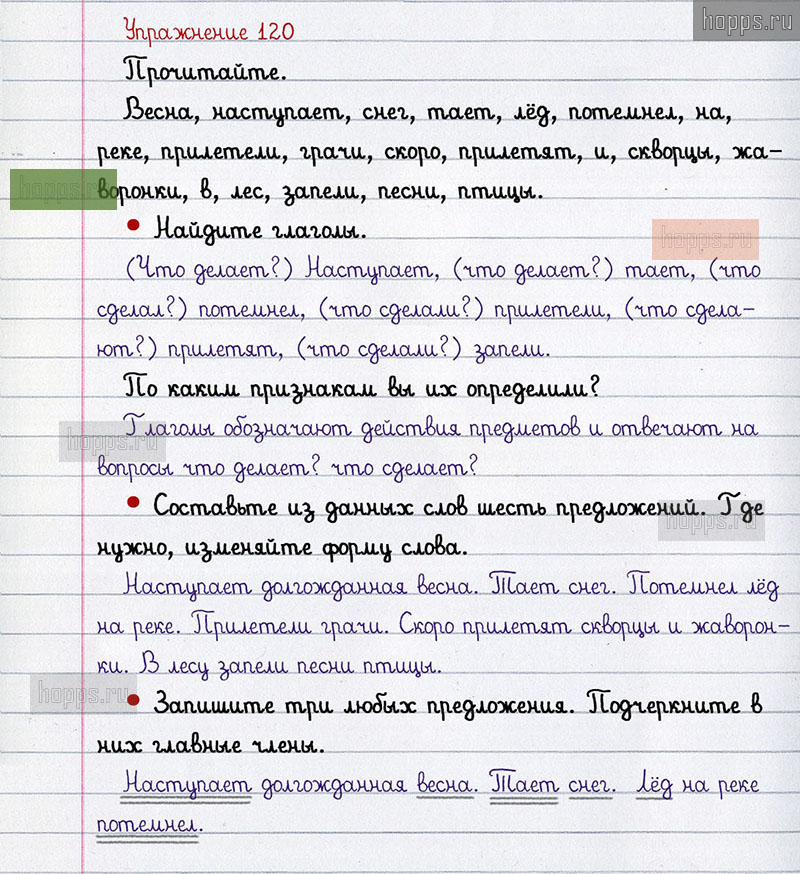 hopps.ru
Упражнение 120
Прочитайте.
Весна, наступает, снег, тает, лёд, потемнел, на,
реке, прилетели, грачи, скоро, прилетят, и, скворцы, жа-
воронки, в, лес, запели, песни, птицы.
hopps.ru
• Найдите глаголы.
hopps.ru
(Что делает?) Наступает, (что делает?) тает, (что
сделал?) потемнел, (что сделали?) прилетели, (что сдела-
ют?) прилетят, (что сделали?) запели.
По каким признакам вы их определили?
Глаголы обозначают действия предметов и отвечают на
hopps.ru
вопросы что делает? что сделает?
• Составьте из данных слов шесть предложений. Где
hopps.ru
нужно, изменяйте форму слова.
Наступает долгожданная весна. Тает снег. Потемнел лёд
на реке. Прилетели грачи. Скоро прилетят скворцы и жаворон-
ки. В лесу запели песни птицы.
hopps.ru
• Запишите три любых предложения. Подчеркните в
них главные члены.
Наступает долгожданная весна. Тает снег. Лёд на реке
потемнел.